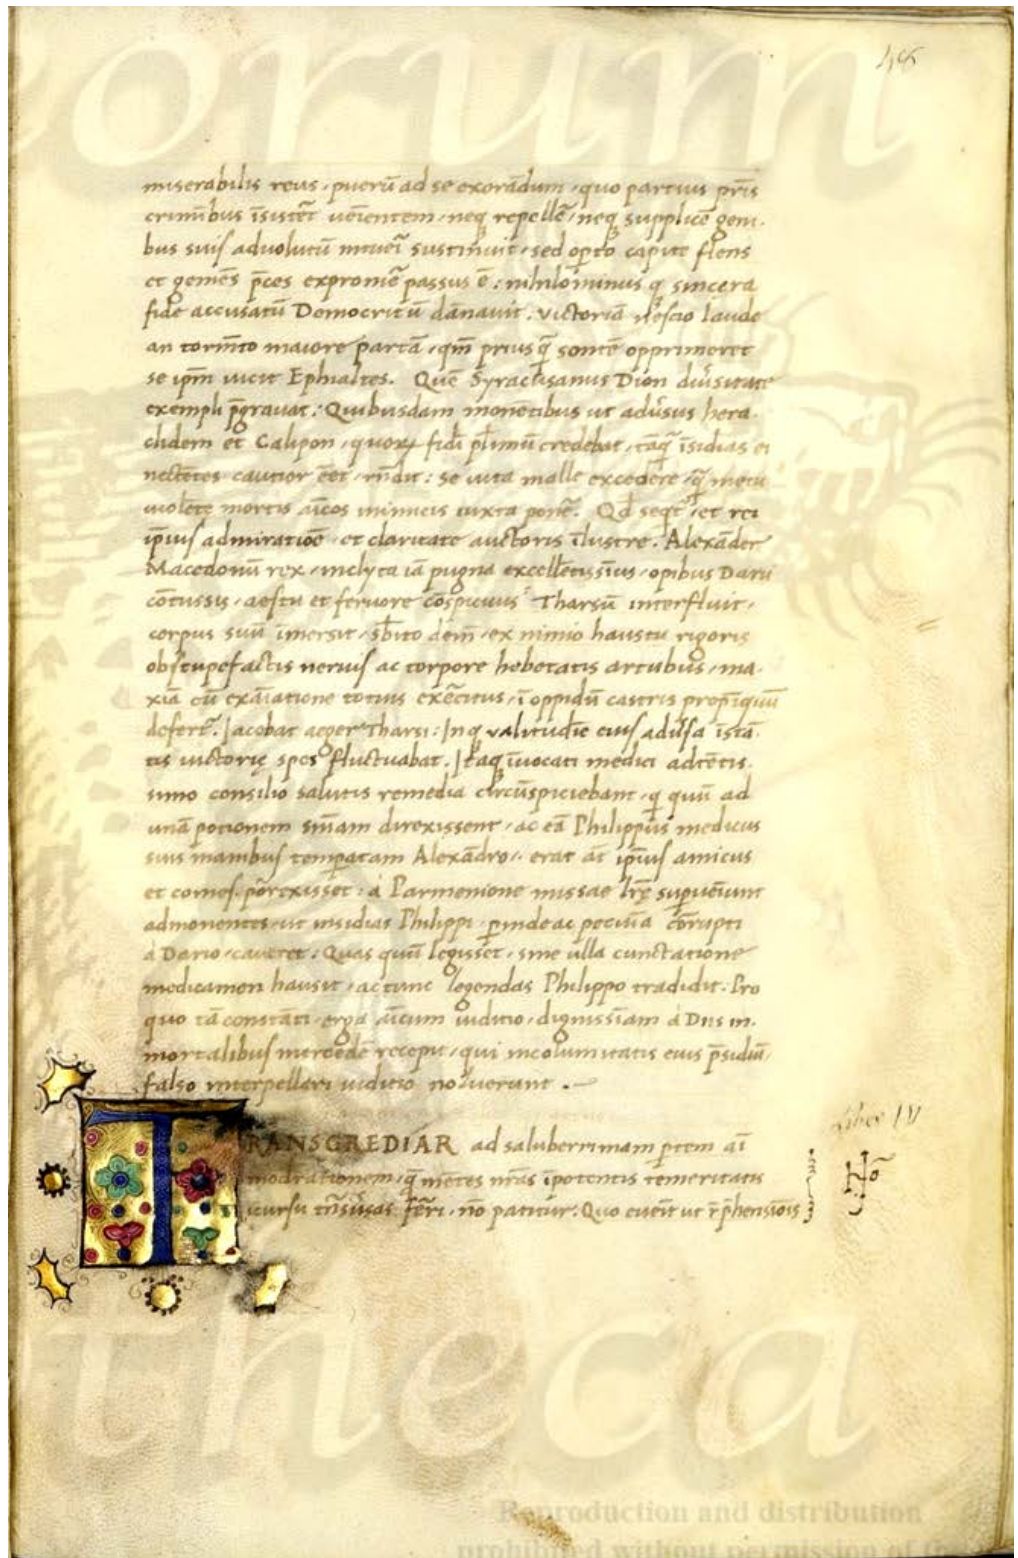 48
miserabilis reus, puerū ad se exorādum, quo partius pr̄is
crimīnbus īsisteret uēientem, neq; repellē, neq; supplicē geni-
bus suis aduolutū intueri sustinuit, sed opto capite flens
et gemēs p̄ces expromē passus ē: nihilominus q; sincera
fide accusatū Democritū dānauit. victoriā nescio laude
an torm̄to maiore partā, qm̄ priusq̄ sontē opprimeret
se ipm̄ uicit Ephialtes. Quē Syracusanus Dion diu̇sitate
exempli p̄grauat. Quibusdam monētibus ut adu̇sus hera-
clidem et Calipon, quorꝝ fidī pl̄imū credebat, tāq̄ īsidias ei
nectētes cautior eēt, rn̄dit: se uita malle excedere, q̄ metu
uiolēte mortis aīcos inimicis iuxta ponē. Qd̄ seqt̄, et rei
ip̄ius admiratiōe et claritate auctoris īlustre. Alexāder
Macedonū rex, inclyta iā pugna excellētissim̄us, opibus Darii
cōtussis, aestu et feruore cōspicuus Tharsū interfluit,
corpus suū īmersit, sb̄ito dem̄, ex nimio haustu rigoris
obstupefactis neruis ac torpore hebetatis artubus, ma-
xīa cū exāiatione totius exe͠citus, ī oppidū castris prop̄iquū
defert̄. Iacobat aeger Tharsi: Inq; valitudīe eius adu̇sa īstā-
tis uictorię spes fluctuabat. Itaq; īuocati medici adtētis-
simo consilio salutis remedia circūspiciebant, q; quū ad
unā potionem sn̄iam direxissent, ac eā Philippus medicus
suis manibus temp̄atam Alexādro, erat āt ip̄ius amicus
et comes, porrexisset: à Parmenione missae lr̄ę sup̄ueīunt
admonentes, ut insidias Philippi, p̄inde ac pecuīa corrupti
à Dario, caueret: Quas quū legisset, sine ulla cunctatione
medicamen hausit, ac tunc legendas Philippo tradidit. Pro
quo tā constāti erga aīcum iuditio, dignissīam à Diis in-
mortalibus mercedē recepit, qui incolumitatis eius p̄sidiū,
falso interpellari iuditio noluerunt.
Liber IV
TRANSGREDIAR ad saluberrimam p̄tem aī
modrationem, q̄ mētes nr̄as īpotentis temeritatis
īcursu trn̄su̇sas ferri, nō patitur. Quo euēit ut r̄p̄hensiōis
orum
theca
Reproduction and distribution
prohibited without permission of the